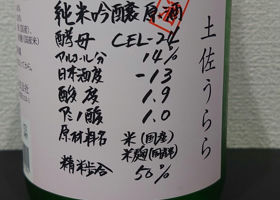 純米吟醸原酒
酵母 CEL-24
アルコール分 14%
日本酒度 -13
酸度 1.9
アミノ酸 1.0
原材料名 米(国産)
米麹(国産米)
精米歩合 50%
土佐うらら